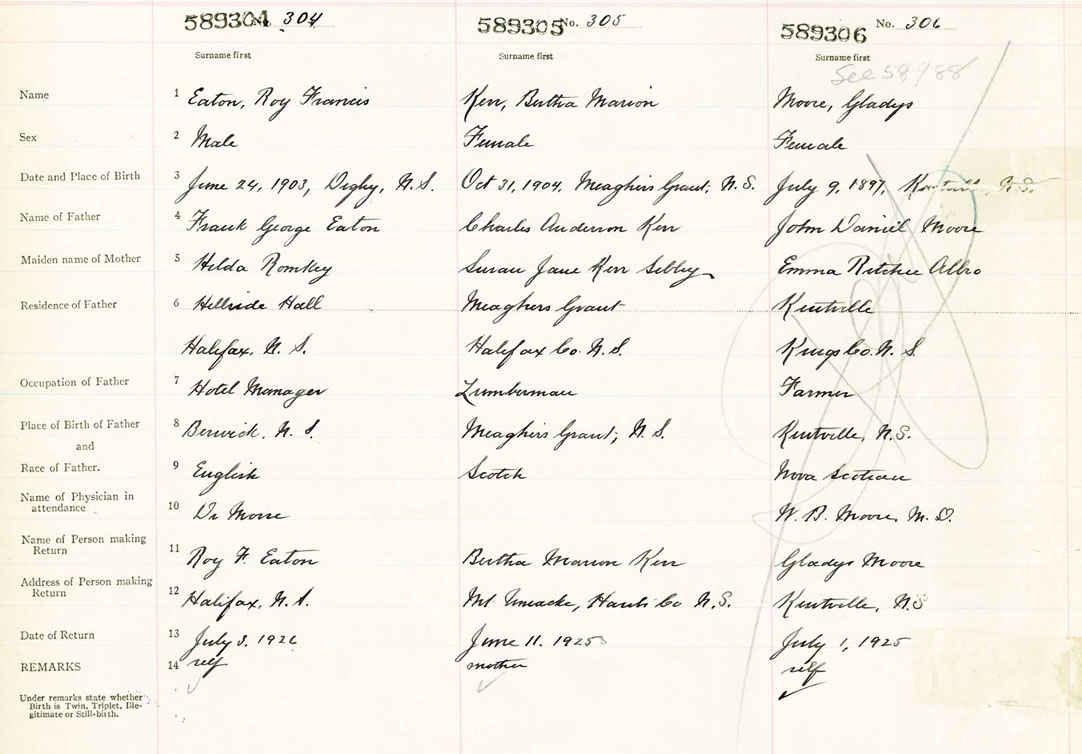 589304 No. 304 589305 No. 305 589306 No. 306
Surname first Surname first Surname first
See 58988
Name 1 Eaton, Roy Francis Kerr, Bertha Marion Moore, Gladys
Sex 2 Male Female Female
Date and Place of Birth 3 June 24, 1903, Digby, N.S. Oct 31, 1904, Meaghers Grant, N.S. July 9, 1897, Kentville, N.S.
Name of Father 4 Frank George Eaton Charles Anderson Kerr John Daniel Moore
Maiden name of Mother 5 Hilda Romkey Susan Jane Kerr Sibley Emma Ritchie Albro
Residence of Father 6 Hillside Hall Meaghers Grant Kentville
Halifax, N.S. Halifax Co. N.S. Kings Co. N.S.
Occupation of Father 7 Hotel Manager Lumberman Farmer
Place of Birth of Father 8 Berwick, N.S. Meaghers Grant, N.S. Kentville, N.S.
and
Race of Father. 9 English Scotch Nova Scotian
Name of Physician in
attendance 10 Dr Morse W. B. Moore, M.D.
Name of Person making
Return 11 Roy F. Eaton Bertha Marion Kerr Gladys Moore
Address of Person making
Return 12 Halifax, N.S. Mt Uniacke, Hants Co N.S. Kentville, N.S
Date of Return 13 July 3, 1926 June 11, 1925 July 1, 1925
REMARKS 14 self mother self
Under remarks state whether
Birth is Twin, Triplet, Ille-
gitimate or Still-birth.